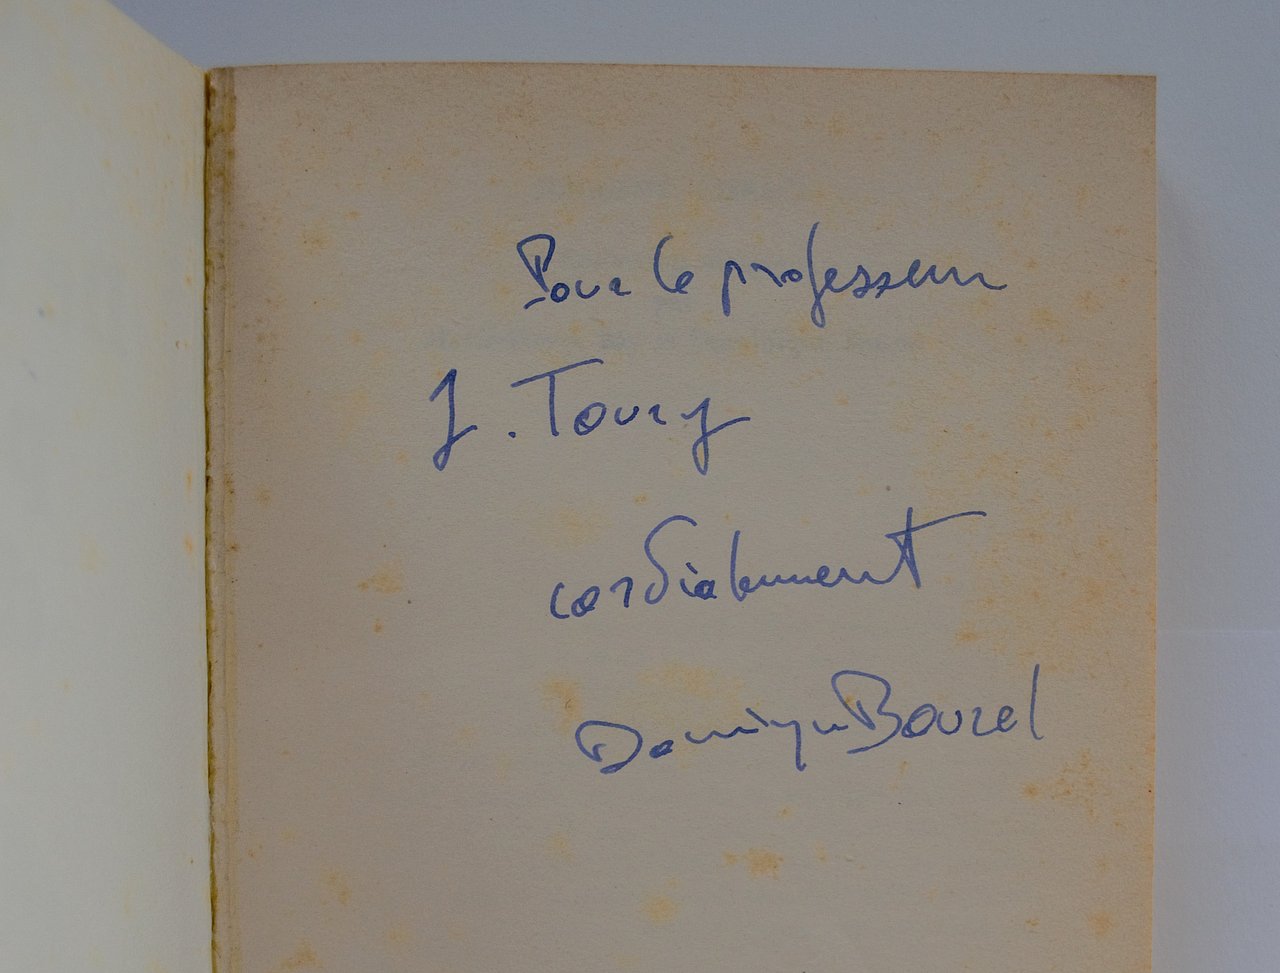 Pour le professeur
J. Toury
cordialement
Dominique Bourel